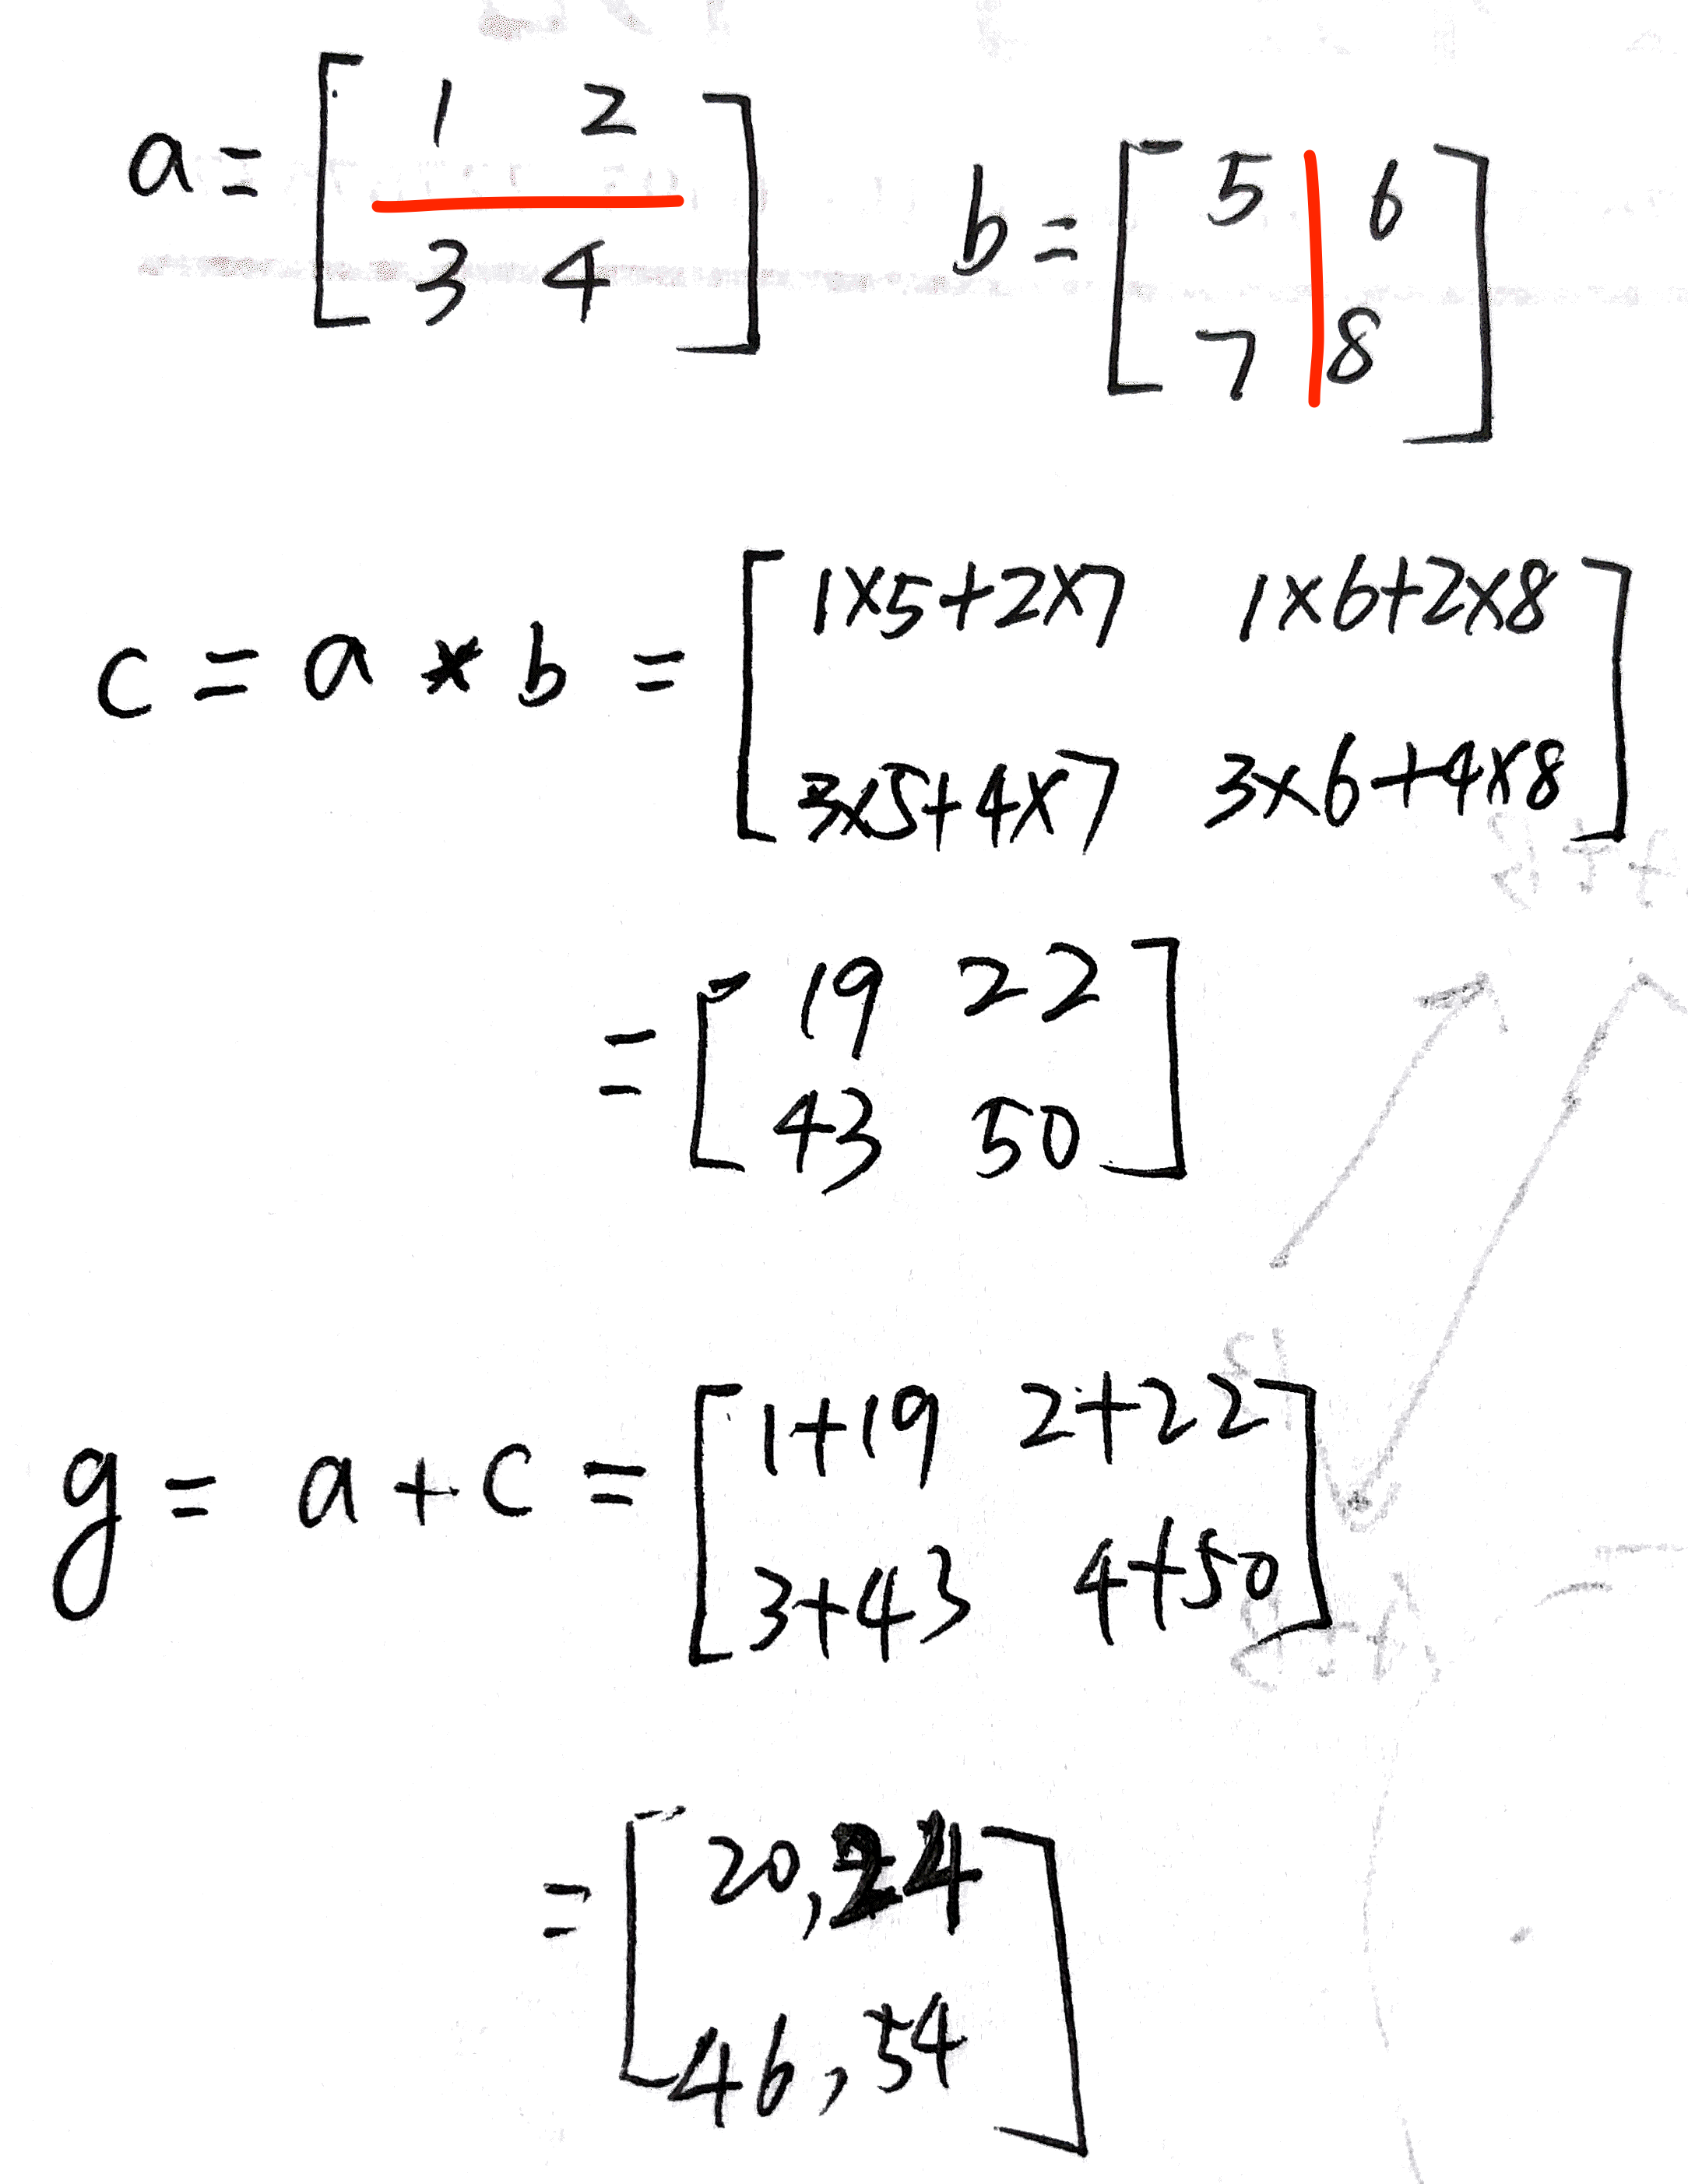 a = [ 1 2
3 4 ]
b = [ 5 6
7 8 ]
c = a * b = [ 1×5+2×7 1×6+2×8
3×5+4×7 3×6+4×8 ]
= [ 19 22
43 50 ]
g = a + c = [ 1+19 2+22
3+43 4+50 ]
= [ 20, 24
46, 54 ]